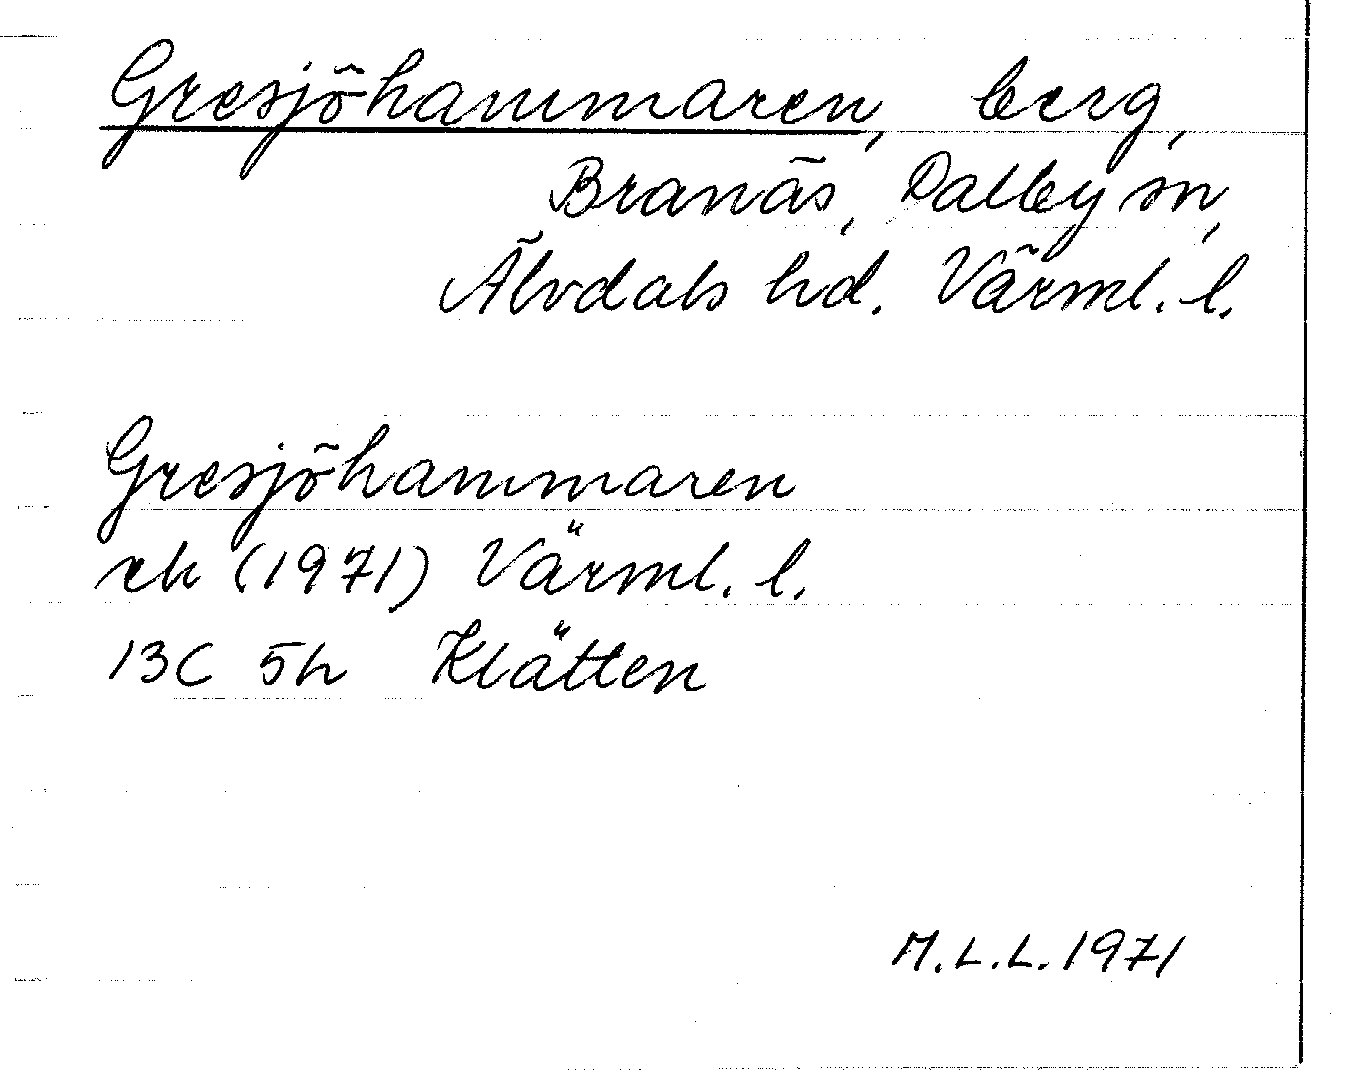 Gresjöhammaren, berg,
Branäs, Dalby sn,
Älvdals hd. Värml. l.
Gresjöhammaren
ek (1971) Värml. l.
13C 5h Klätten
M.L.L. 1971